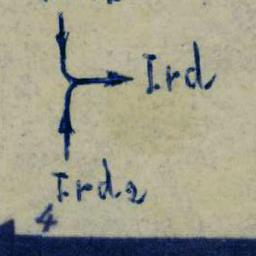 Ird
Ird2
4